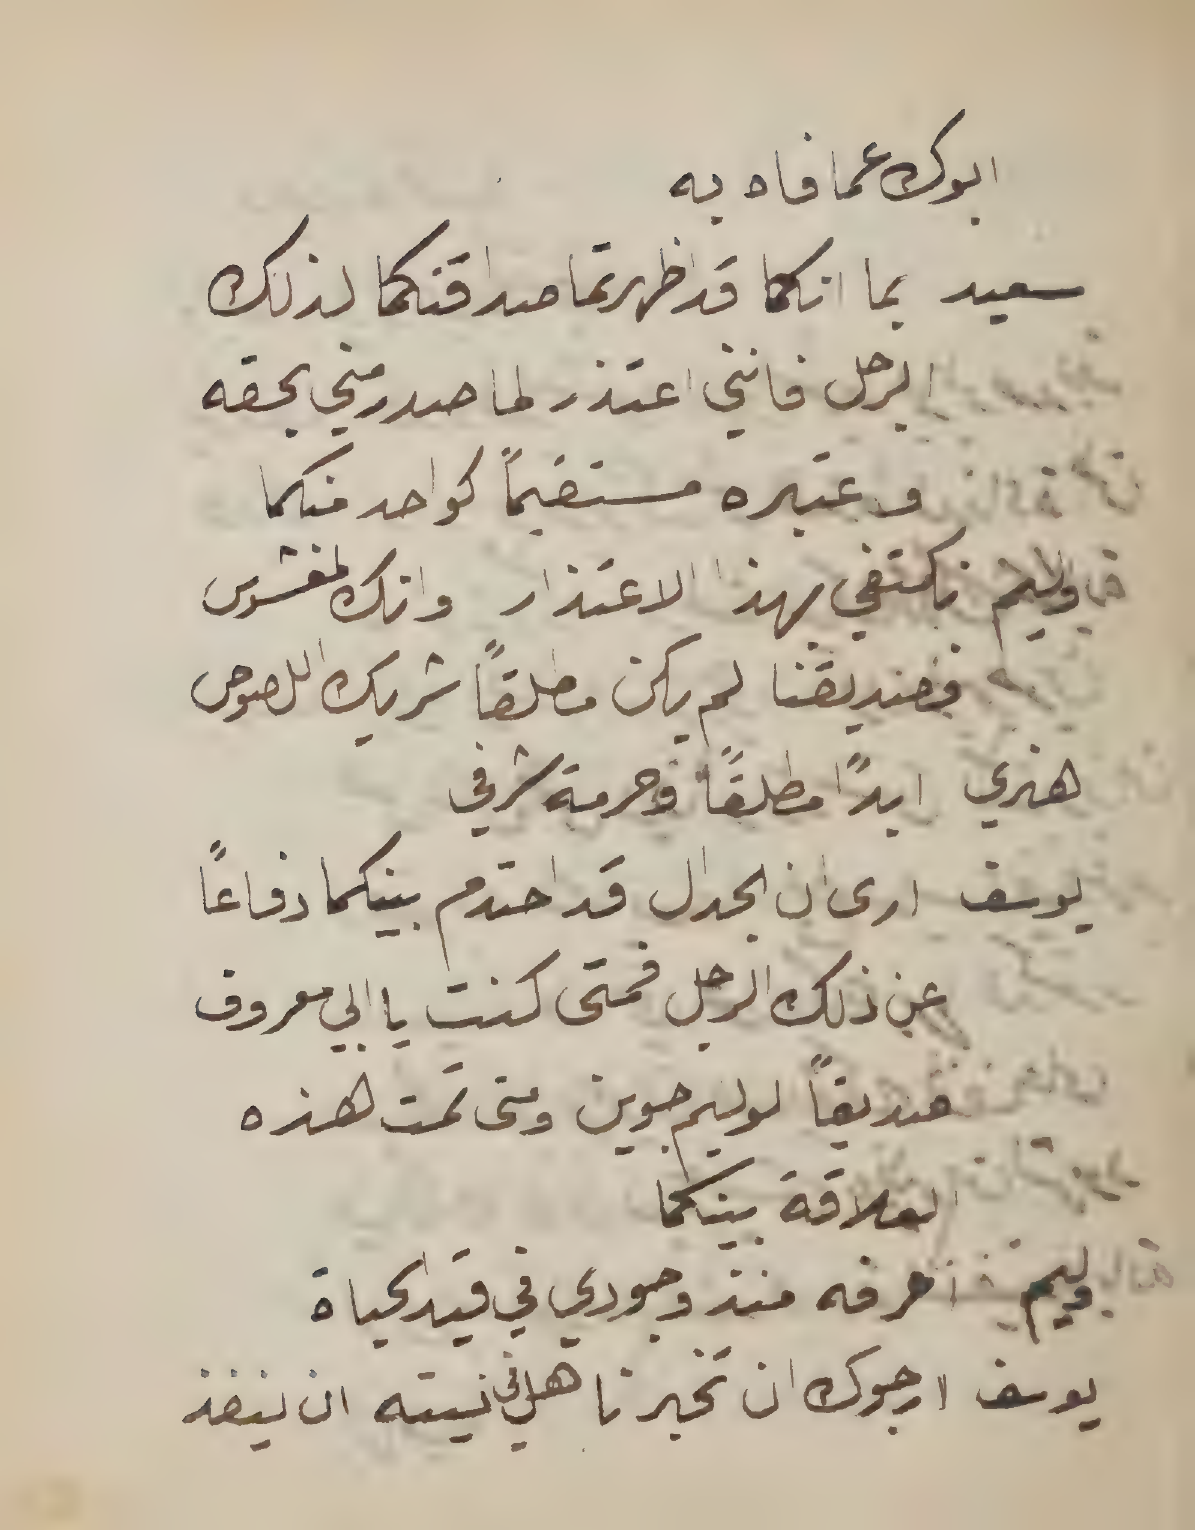 ابوك عما فاه به
سعيد بما انكما قد اظهرتما صداقتكما لذلك
الرجل فانني اعتذر لما صدر مني بحقه
واعتبره مستقيماً كواحد منكما
وليم نكتفي بهذا الاعتذار وانك لمغشوش
فصديقنا لم يكن مطلقاً شريك اللصوص
هنري ابداً مطلقاً وحرمة شرفي
يوسف ارى ان الجدال قد احتدم بينكما دفاعاً
عن ذلك الرجل فمتى كنت يا ابي معروف
صديقاً لوليم جوين ومتى تمت هذه
العلاقة بينكما
وليم اعرفه منذ وجودي في قيد الحياة
يوسف ارجوك ان تخبرنا هل في نيته ان ينفذ